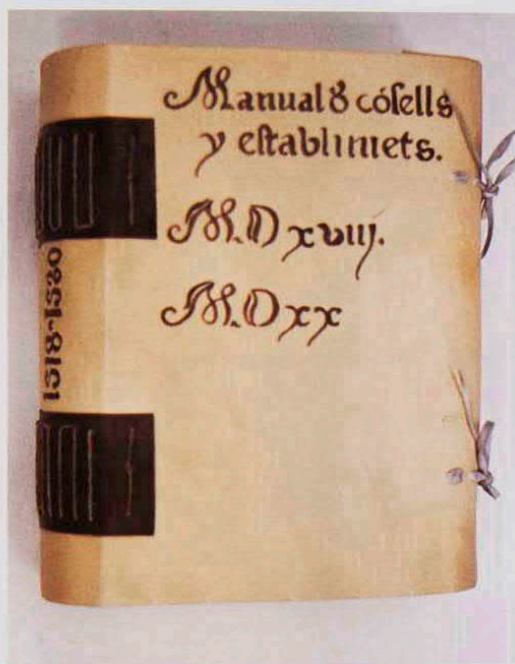 Manual δ cóſells
y eſtablimets.
M.D xviij.
M.D xx
1518-1520